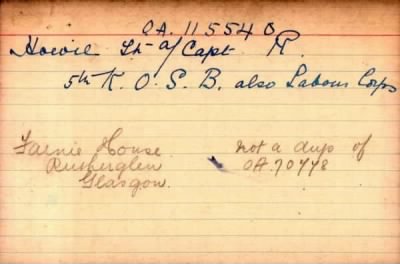 OA. 11554 O
Howie Lt a/Capt R.
5th K. O. S. B. also Labour Corps
House not a dup of
Rutherglen OA. 70778
Glasgow.